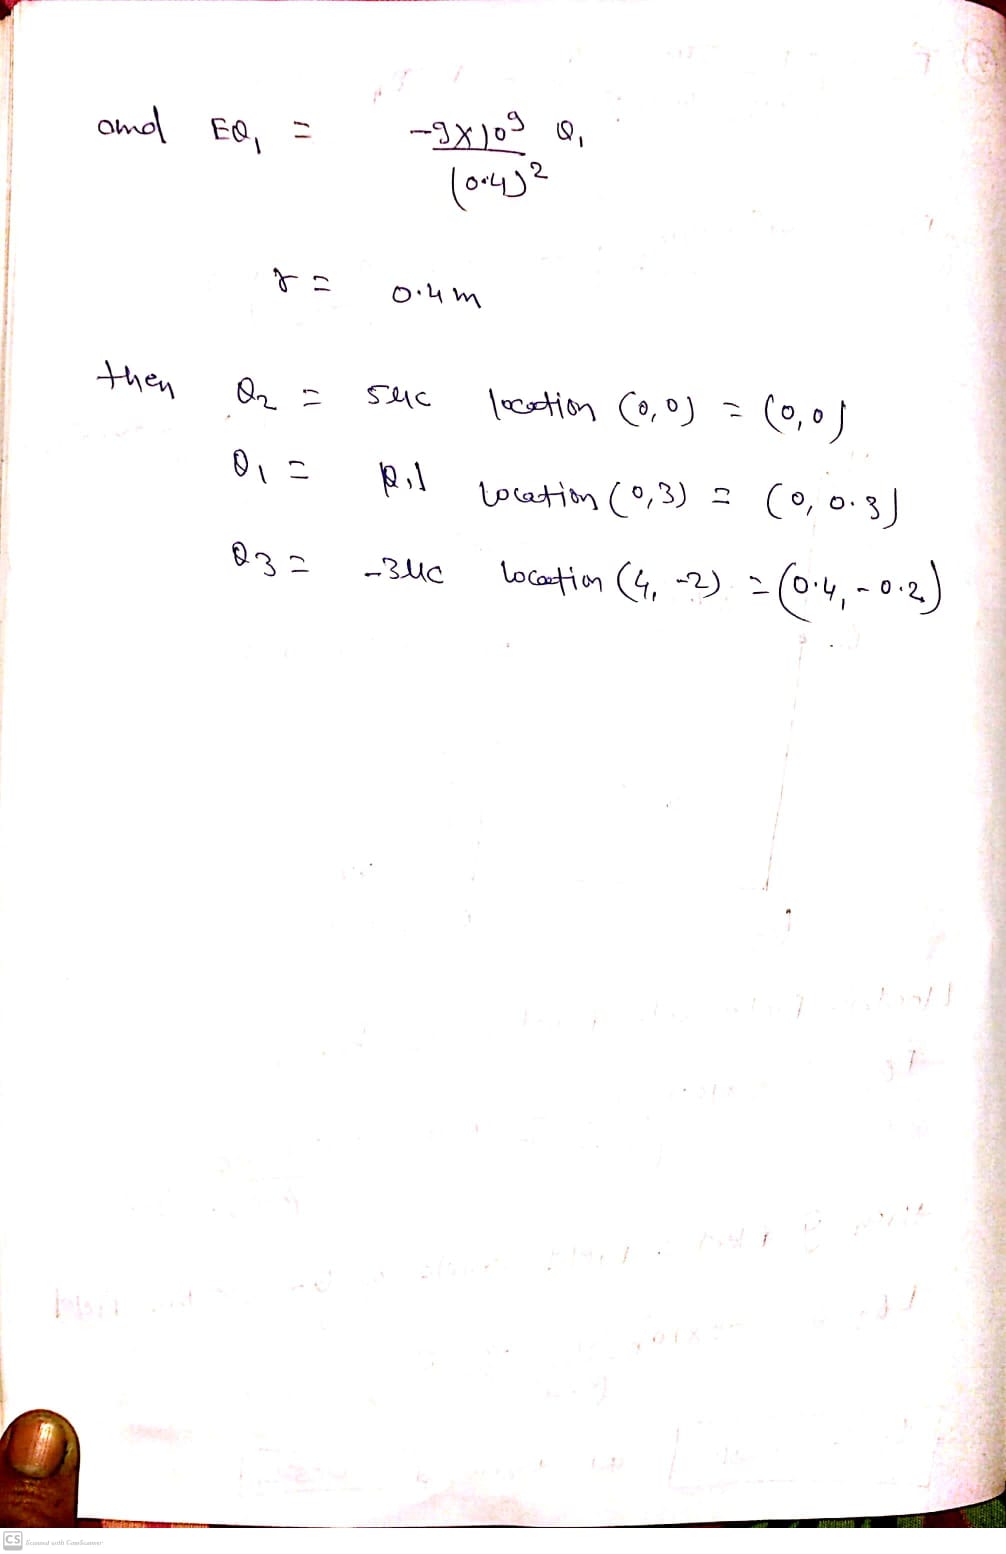 and EQ₁ = -9×10⁹ Q₁
(0.4)²
r = 0.4 m
then Q₂ = 5μc location (0,0) = (0,0)
Q₁ = location (0,3) = (0, 0.3)
Q3 = -3μc location (4, -2) = (0.4, -0.2)
CS Scanned with CamScanner